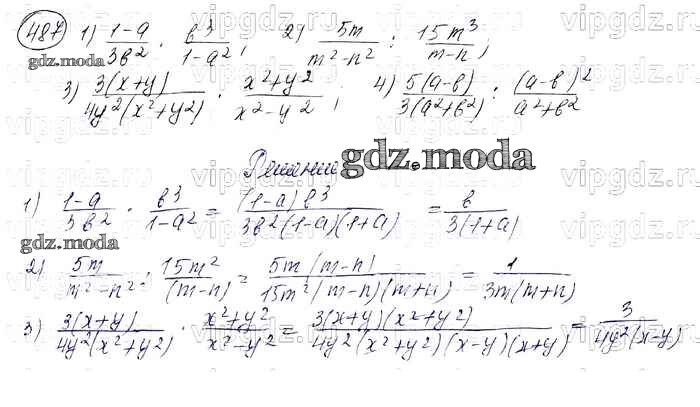 487 1) (1-a)/(3b²) · b³/(1-a²); 2) 5m/(m²-n²) : 15m³/(m-n);
gdz.moda
3) 3(x+y)/(4y²(x²+y²)) · (x²+y²)/(x²-y²); 4) 5(a-b)/(3(a²+b²)) : (a-b)²/(a²+b²)
Решение gdz.moda
1) (1-a)/(3b²) · b³/(1-a²) = (1-a)b³/(3b²(1-a)(1+a)) = b/(3(1+a))
gdz.moda
2) 5m/(m²-n²) : 15m²/(m-n) = 5m(m-n)/(15m²(m-n)(m+n)) = 1/(3m(m+n))
3) 3(x+y)/(4y²(x²+y²)) · (x²+y²)/(x²-y²) = 3(x+y)(x²+y²)/(4y²(x²+y²)(x-y)(x+y)) = 3/(4y²(x-y))